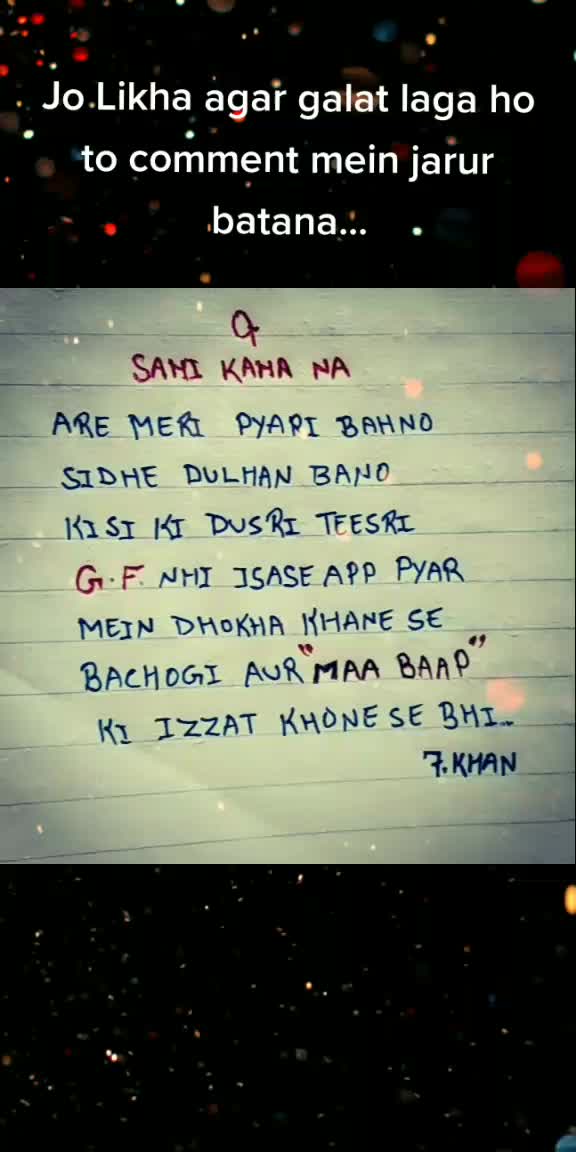 Jo Likha agar galat laga ho
to comment mein jarur
batana...
SAHI KAHA NA
ARE MERI PYARI BAHNO
SIDHE DULHAN BANO
KISI KI DUSRI TEESRI
G.F. NHI ISASE APP PYAR
MEIN DHOKHA KHANE SE
BACHOGI AUR "MAA BAAP"
KI IZZAT KHONE SE BHI..
7.KHAN